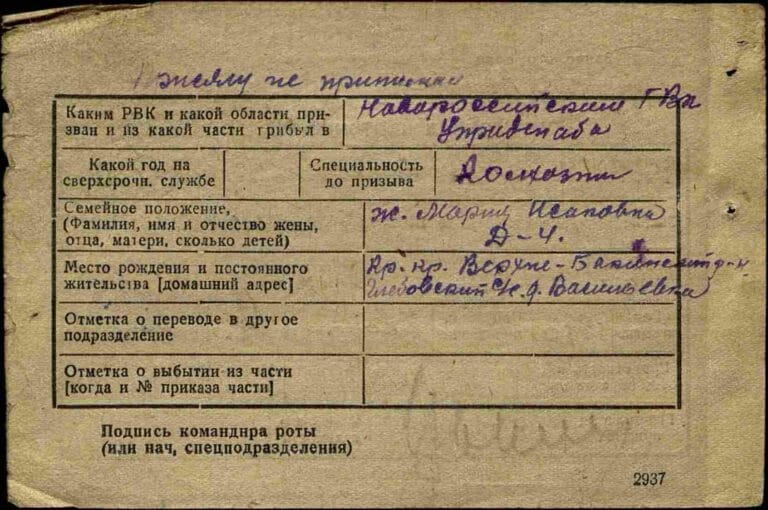 присягу не принимал
Каким РВК и какой области при-
зван и из какой части прибыл в
Новороссийский ГВК
Какой год на
сверхсрочн. службе
Специальность
до призыва
Колхозник
Семейное положение,
(Фамилия, имя и отчество жены,
отца, матери, сколько детей)
ж. Мария Исаковна
Д-4.
Место рождения и постоянного
жительства [домашний адрес]
Кр. кр. Верхне-Баканский р-н
Глебовский с/с д. Васильевка
Отметка о переводе в другое
подразделение
Отметка о выбытии из части
[когда и № приказа части]
Подпись командира роты
(или нач, спецподразделения)
2937